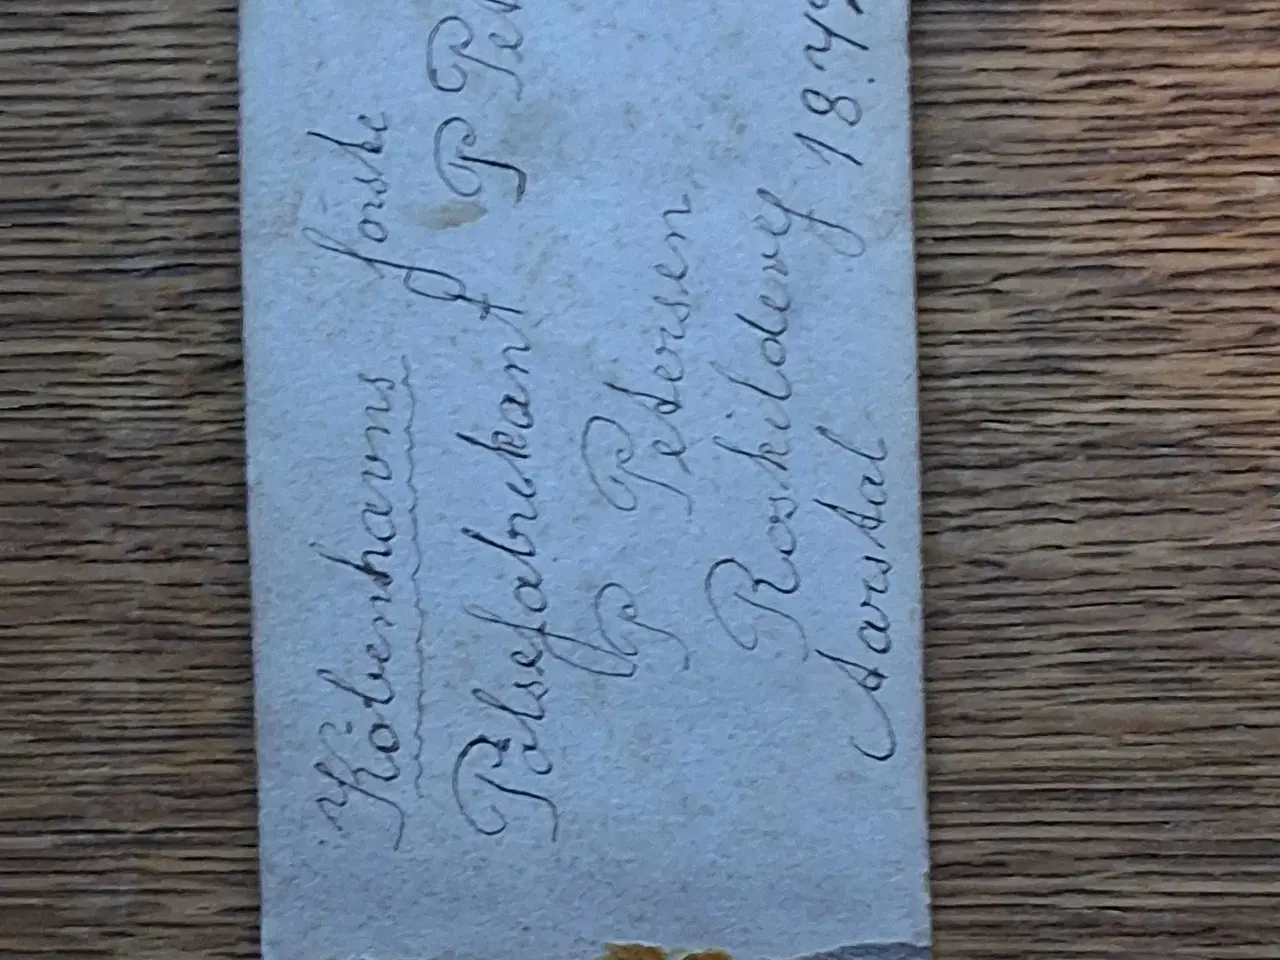 Köbenhavns förste
Pölsefabrekant P Pet
P Petersen
Roskildevej 18.
Aarstal